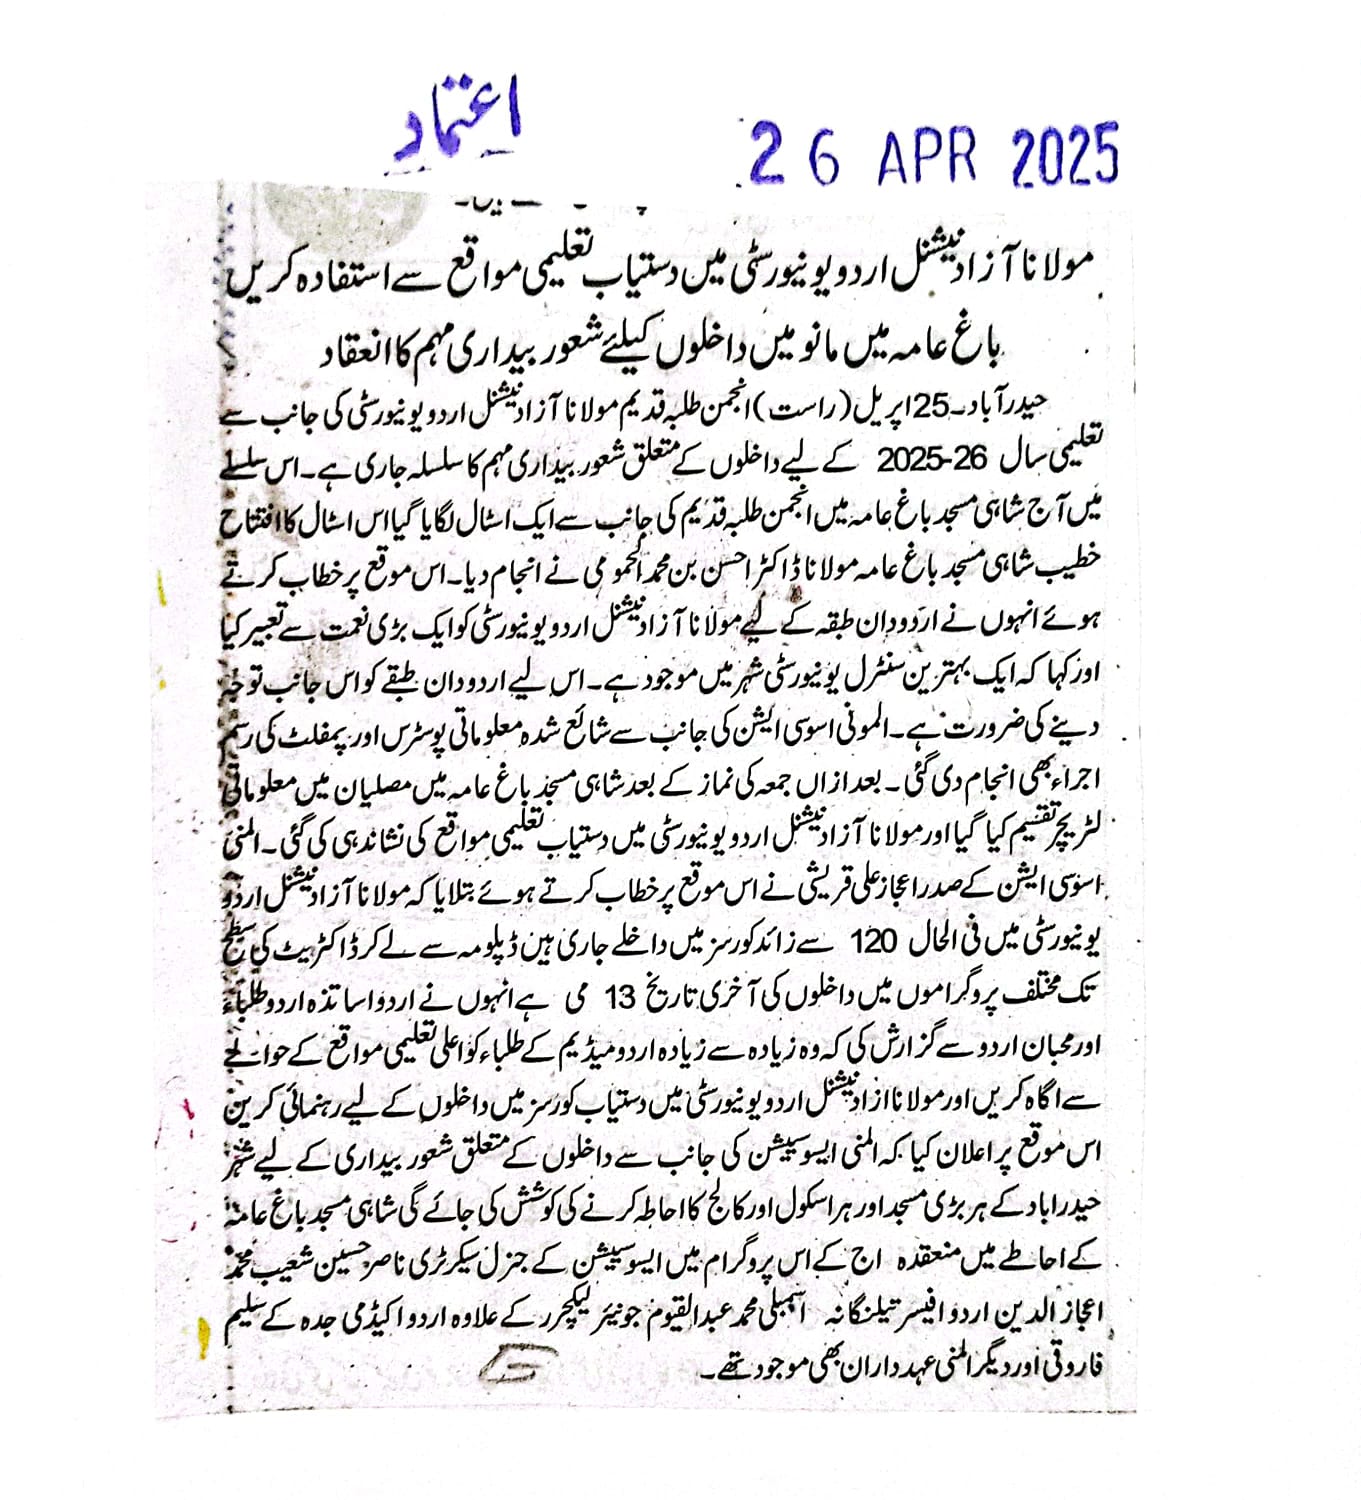 اعتماد
26 APR 2025
مولانا آزاد نیشنل اردو یونیورسٹی میں دستیاب تعلیمی مواقع سے استفادہ کریں
باغ عامہ میں مانو میں داخلوں کیلئے شعور بیداری مہم کا انعقاد
حیدرآباد۔25 اپریل (راست) انجمن طلبہ قدیم مولانا آزاد نیشنل اردو یونیورسٹی کی جانب سے
تعلیمی سال 2025-26 کے لیے داخلوں کے متعلق شعور بیداری مہم کا سلسلہ جاری ہے۔ اس سلسلے
میں آج شاہی مسجد باغ عامہ میں انجمن طلبہ قدیم کی جانب سے ایک اسٹال لگایا گیا اس اسٹال کا افتتاح
خطیب شاہی مسجد باغ عامہ مولانا ڈاکٹر احسن بن محمد الحمومی نے انجام دیا۔ اس موقع پر خطاب کرتے
ہوئے انہوں نے اردودان طبقہ کے لیے مولانا آزاد نیشنل اردو یونیورسٹی کو ایک بڑی نعمت سے تعبیر کیا
اور کہا کہ ایک بہترین سنٹرل یونیورسٹی شہر میں موجود ہے۔ اس لیے اردودان طبقے کو اس جانب توجہ
دینے کی ضرورت ہے۔ المونی اسوسی ایشن کی جانب سے شائع شدہ معلوماتی پوسٹرس اور پمفلٹ کی رسم
اجراء بھی انجام دی گئی۔ بعد ازاں جمعہ کی نماز کے بعد شاہی مسجد باغ عامہ میں مصلیان میں معلوماتی
لٹریچر تقسیم کیا گیا اور مولانا آزاد نیشنل اردو یونیورسٹی میں دستیاب تعلیمی مواقع کی نشاندہی کی گئی۔ المنی
اسوسی ایشن کے صدر اعجاز علی قریشی نے اس موقع پر خطاب کرتے ہوئے بتلایا کہ مولانا آزاد نیشنل اردو
یونیورسٹی میں فی الحال 120 سے زائد کورسز میں داخلے جاری ہیں ڈپلومہ سے لے کر ڈاکٹریٹ کی سطح
تک مختلف پروگراموں میں داخلوں کی آخری تاریخ 13 می ہے انہوں نے اردو اساتذہ اردو طلباء
اور محبان اردو سے گزارش کی کہ وہ زیادہ سے زیادہ اردو میڈیم کے طلباء کو اعلی تعلیمی مواقع کے حوالے
سے اگاہ کریں اور مولانا ازاد نیشنل اردو یونیورسٹی میں دستیاب کورسز میں داخلوں کے لیے رہنمائی کریں
اس موقع پر اعلان کیا کہ المنی ایسوسییشن کی جانب سے داخلوں کے متعلق شعور بیداری کے لیے شہر
حیدراباد کے ہر بڑی مسجد اور ہر اسکول اور کالج کا احاطہ کرنے کی کوشش کی جائے گی شاہی مسجد باغ عامہ
کے احاطے میں منعقدہ اج کے اس پروگرام میں ایسوسییشن کے جنرل سیکرٹری ناصر حسین شعیب محمد
اعجاز الدین اردو افیسر تیلنگانہ اسمبلی محمد عبدالقیوم جونیئر لیکچرر کے علاوہ اردو اکیڈمی جدہ کے سلیم
فاروقی اور دیگر المنی عہدداران بھی موجود تھے۔